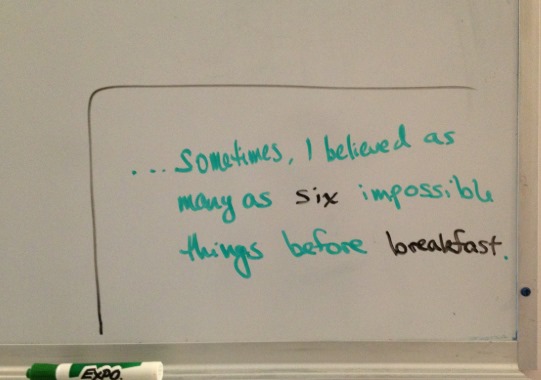 ... Sometimes, I believed as
many as six impossible
things before breakfast.
EXPO.